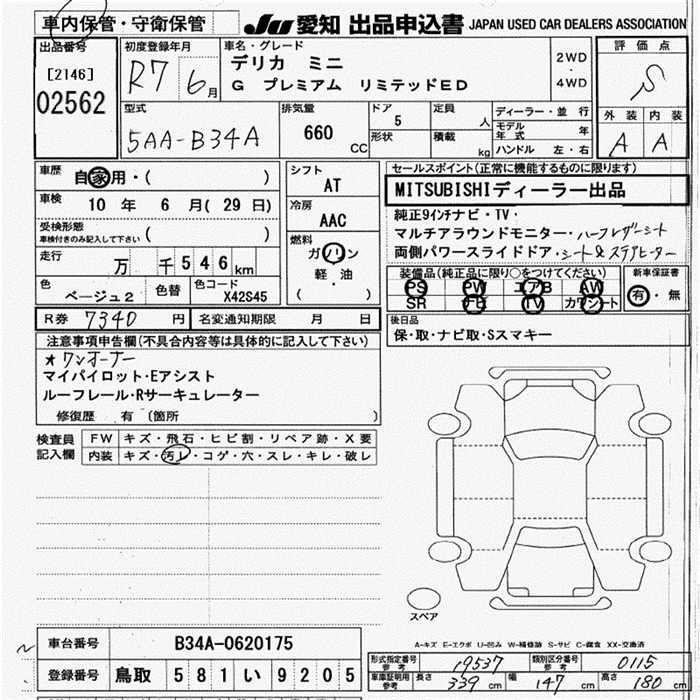 車内保管・守衛保管
JU 愛知 出品申込書 JAPAN USED CAR DEALERS ASSOCIATION
出品番号
[2146]
02562
初度登録年月
R7 6月
車名・グレード
デリカ ミニ
G プレミアム リミテッドED
2WD
・
4WD
評価点
S
外装 内装
A A
型式
5AA-B34A
排気量
660 CC
ドア 5
形状
定員 人
積載 kg
ディーラー・並行
モデル年式 年
ハンドル 左・右
車歴
自家用・( )
車検
10年 6月(29日)
受検形態
車検付きのみ記入して下さい ( )
走行
万 千546km
色
ベージュ2
色替
色コード
X42S45
シフト
AT
冷房
AAC
燃料
ガソリン
軽・油
( )
R券 7340円 名変通知期限 月 日
セールスポイント(正常に機能するものに限ります)
MITSUBISHIディーラー出品
純正9インチナビ・TV・
マルチアラウンドモニター・ハーフレザーシート
両側パワースライドドア・シート&ステアヒーター
装備品(純正品に限り○をつけてください)
PS PW エアB AW
SR ナビ TV カワシート
新車保証書
有・無
後日品
保・取・ナビ取・Sスマキー
注意事項申告欄(不具合内容等は具体的に記入して下さい)
★ワンオーナー
マイパイロット・Eアシスト
ルーフレール・Rサーキュレーター
修復歴 有 (箇所 )
検査員記入欄
FW キズ・飛石・ヒビ割・リペア跡・X要
内装 キズ・汚レ・コゲ・穴・スレ・キレ・破レ
スペア
A-キズ E-エクボ U-凹み W-補修跡 S-サビ C-腐食 XX-交換済
車台番号 B34A-0620175
登録番号 鳥取 581 い 9205
形式指定番号 参考 19537 類別区分番号 参考 0115
車庫証明用 参考 長さ 339cm 幅 147cm 高さ 180cm